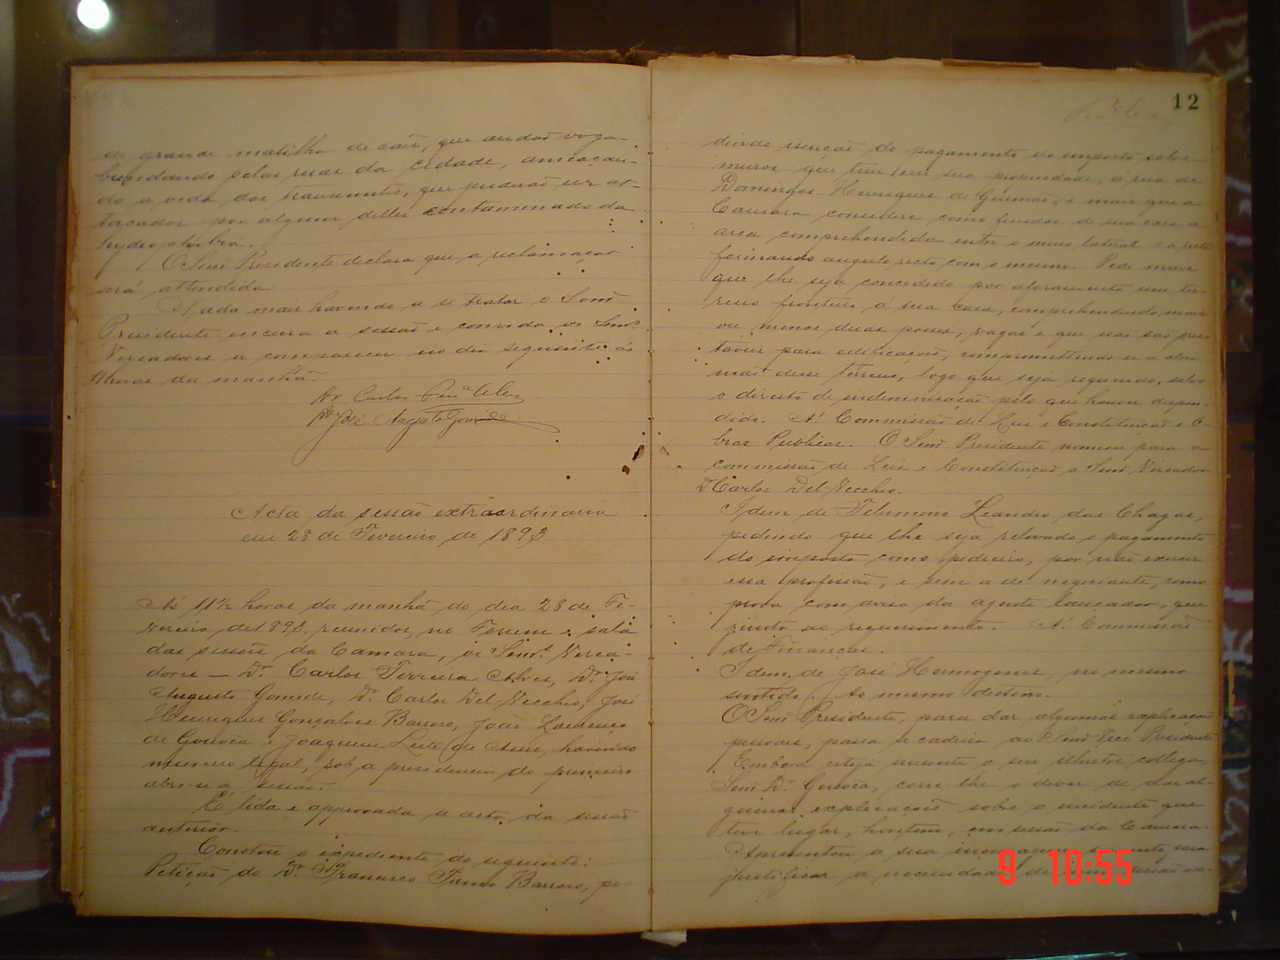 de grande matilha de cães, que andão vaga-
bundando pelas ruas da cidade, ameaçan-
do a vida dos transeuntes, que poderão ser at-
tacados por algum delles contaminado da
hydrophobia.
O Senr Presidente declara que a reclamação
será attendida.
Nada mais havendo a se tratar o Senr
Presidente encerra a sessão e convida os Senrs
Vereadores a comparecer no dia seguinte ás
11 horas da manhã.
Dr Carlos Ferrª Alves
José Augusto Gomide
Acta da sessão extraordinaria
em 28 de Fevereiro de 1893
Ás 11½ horas da manhã do dia 28 de Fe-
vereiro de 1893, reunidos, no Forum e sala
das sessões da Camara, os Senrs Verea-
dores — Dr. Carlos Ferreira Alves, Dr. José
Augusto Gomide, Dr. Carlos Del Vecchio, José
Henriques Gonçalves Barroso, João Lourenço
de Gouvêa e Joaquim Leite de Assis, havendo
numero legal, sob a presidencia do primeiro
abre-se a sessão.
É lida e approvada a acta da sessão
anterior.
Constou o expediente do seguinte:
Petição do Dr. Francisco Barroso, pe-
12
dindo isenção do pagamento do imposto sobre
muros que tem em sua propriedade, á rua de
Domingos Henriques de Gusmão, e mais que a
Camara considere como fundos de sua casa a
area comprehendida entre o muro lateral e a recta
formando angulo recto com o mesmo. Pede mais
que lhe seja concedido por aforamento um ter-
reno fronteiro á sua casa, comprehendendo mais
ou menos duas posses, vagas e que não são
para edificação, compromettendo-se a abrir
mão desse terreno, logo que seja requerido, salvo
o direito de indemnisação pelo que houver dispen-
dido. Á Commissão de Leis e Constituição e O-
bras Publicas. O Senr Presidente nomeou para a
commissão de Leis e Constituição o Senr Vereador
Dr Carlos Del Vecchio.
Idem, de Leandro das Chagas,
pedindo que lhe seja relevado o pagamento
do imposto como pedreiro, por não exercer
essa profissão, e sem a de negociante, como
prova com aviso do agente lançador, que
junta ao requerimento. Á Commissão
de Finanças.
Idem, de José Hermogenes, no mesmo
sentido. Ao mesmo destino.
O Senr Presidente, para dar algumas explicações
pessoaes, passa a cadeira ao Senr Vice Presidente
Embora esteja ausente o seu illustre collega,
Senr Dr. Gouvêa, corre-lhe o dever de dar al-
gumas explicações sobre o incidente que
teve lugar, hontem, em sessão da Camara.
Apresentou a sua para
justificar a necessidade de
9 10:55